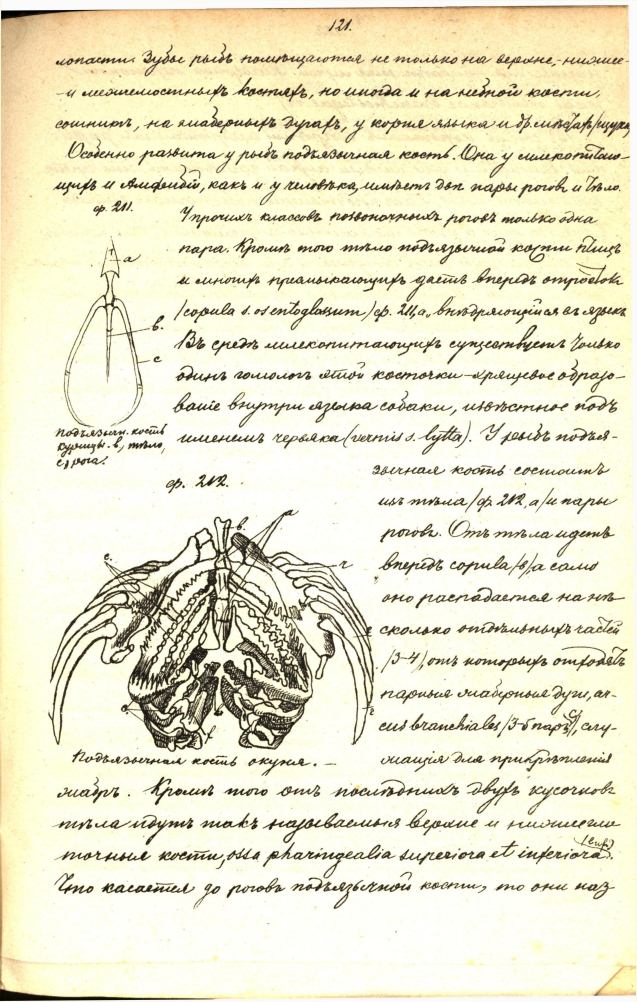 121.
лопасти. Зубы рыбъ помѣщаются не только на верхне,-нижне-
и межчелюстныхъ костяхъ, но иногда и на небной кости,
сошникѣ, на жаберныхъ дугахъ, у корня языка и др. мѣстахъ (щука)
Особенно развита у рыбъ подъязычная кость. Она у млекопитаю-
щихъ и Амфибій, какъ и у человѣка, имѣетъ двѣ пары роговъ и тѣло.
ф. 211.
У прочихъ классовъ позвоночныхъ роговъ только одна
пара. Кромѣ того тѣло подъязычной кости птицъ
и многихъ пресмыкающихъ даетъ впередъ отростокъ
(copula s. os entoglossum) ф. 211, а, внѣдряющійся въ языкъ
Въ средѣ млекопитающихъ существуетъ только
одинъ гомологъ этой косточки – хрящевое образо-
ваніе внутри языка собаки, извѣстное подъ
именемъ червяка (vermis s. lytta). У рыбъ подъя-
a
в.
c
Подъязычн. кость
курицы. в, тѣло,
с, рога.
зычная кость состоитъ
изъ тѣла (ф. 212, а) и пары
роговъ. Отъ тѣла идетъ
впередъ copula (в), а само
оно распадается на нѣ-
сколько отдѣльныхъ частей
(3-4), отъ которыхъ отходятъ
парныя жаберныя дуги, ar-
cus branchiales (3-5 паръ), слу-
жащія для прикрѣпленія
ф. 212.
в.
a
c.
г
e
г
Подъязычная кость окуня. –
жабръ. Кромѣ того отъ послѣднихъ двухъ кусочковъ
тѣла идутъ такъ называемыя верхне и нижнегло
точныя кости, ossa pharingealia superiora et inferiora.
Что касается до роговъ подъязычной кости, то они наз